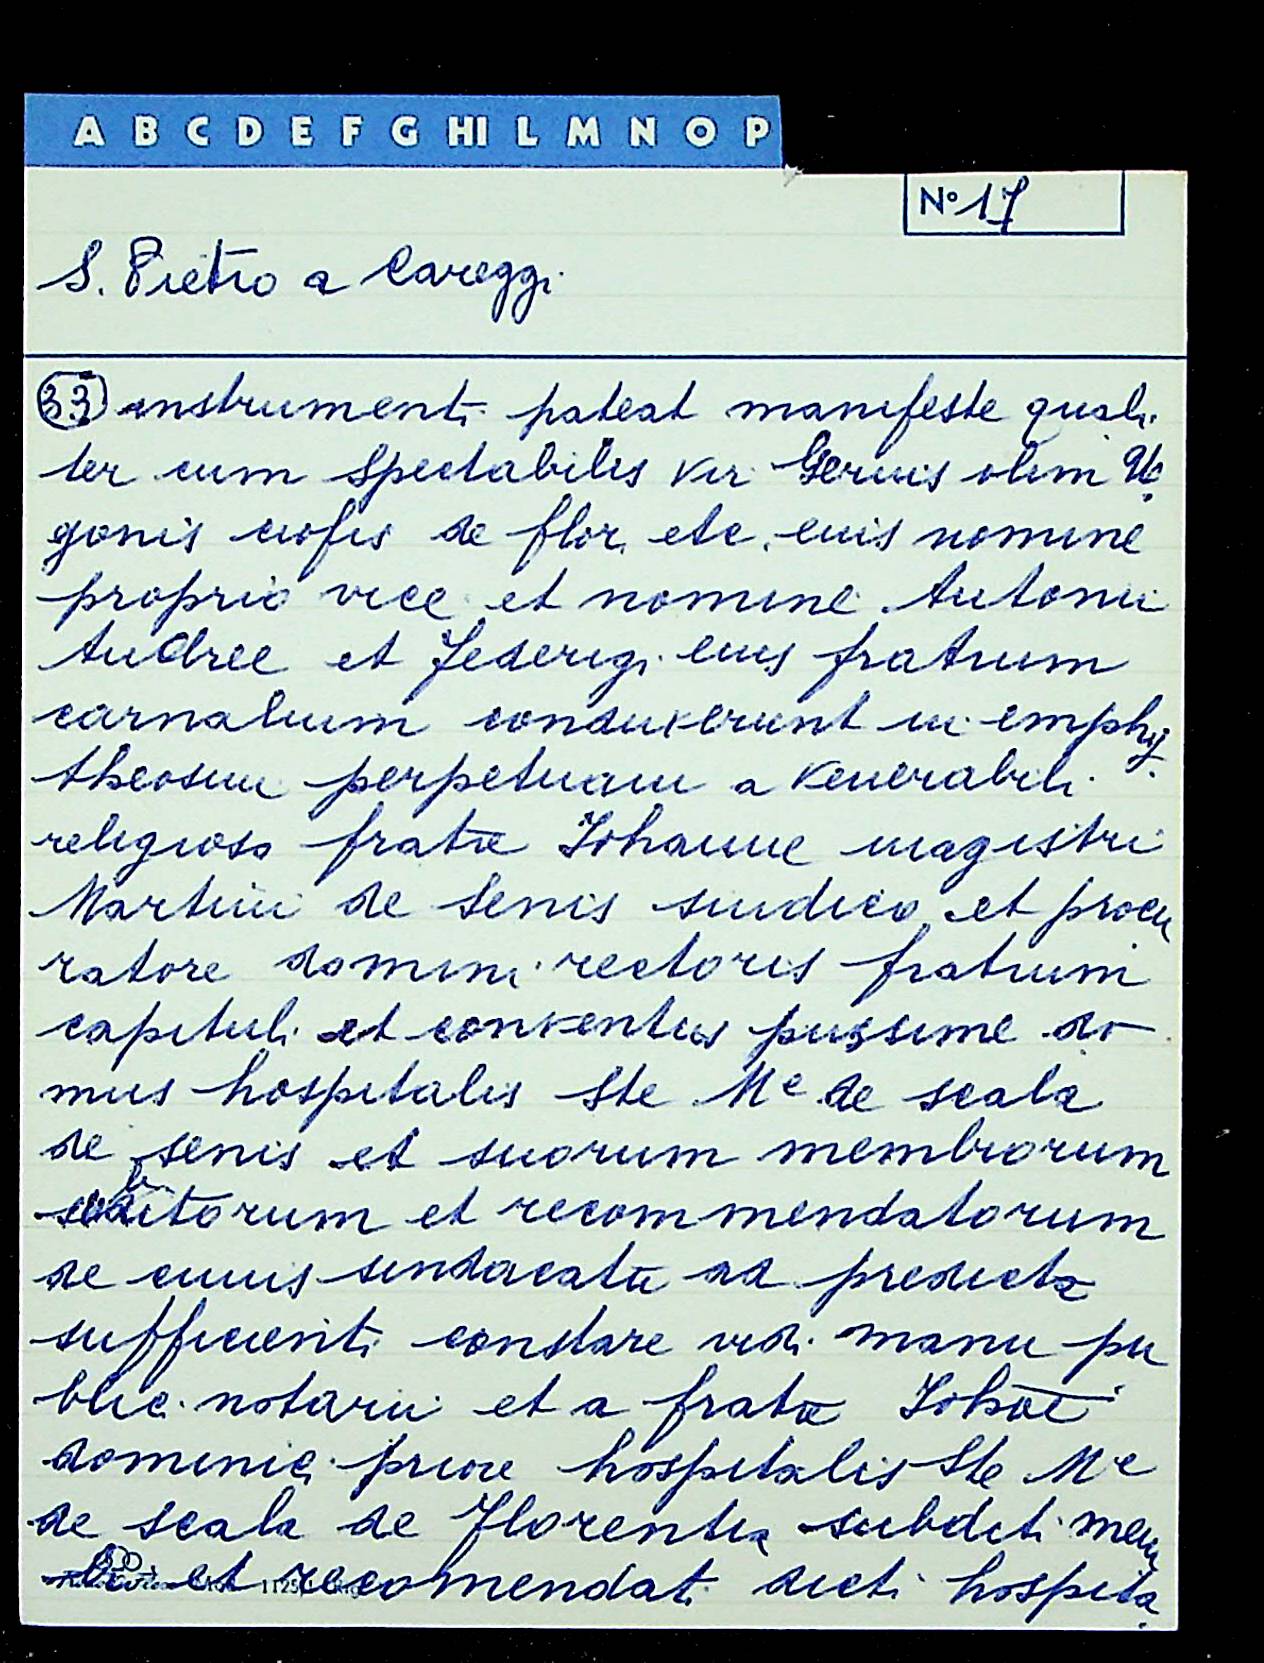 A B C D E F G HI L M N O P
Nº 17
S. Pietro a Careggi
33 instrumenti pateat manifeste quali
ter cum spectabilis vir Gerius olim U
gonis ciofis de flor. etc. eius nomine
proprio vice et nomine Antonii
Andree et Federigi eius fratrum
carnalium conduxerunt in emphy
theosim perpetuam a venerabili
religioso fratre Iohanne magistri
Martini de Senis sindico et procu
ratore domini rectoris fratrum
capituli et conventus piissime do
mus hospitalis Ste Me de scala
de senis et suorum membrorum
et recommendatorum
de cuius sindacatu ad predicta
sufficienti constare vidi manu pu
blic. notarii et a fratre
dominici priore hospitalis Ste Me
de scala de Florentia subditi mem
et recomendati dicti hospita